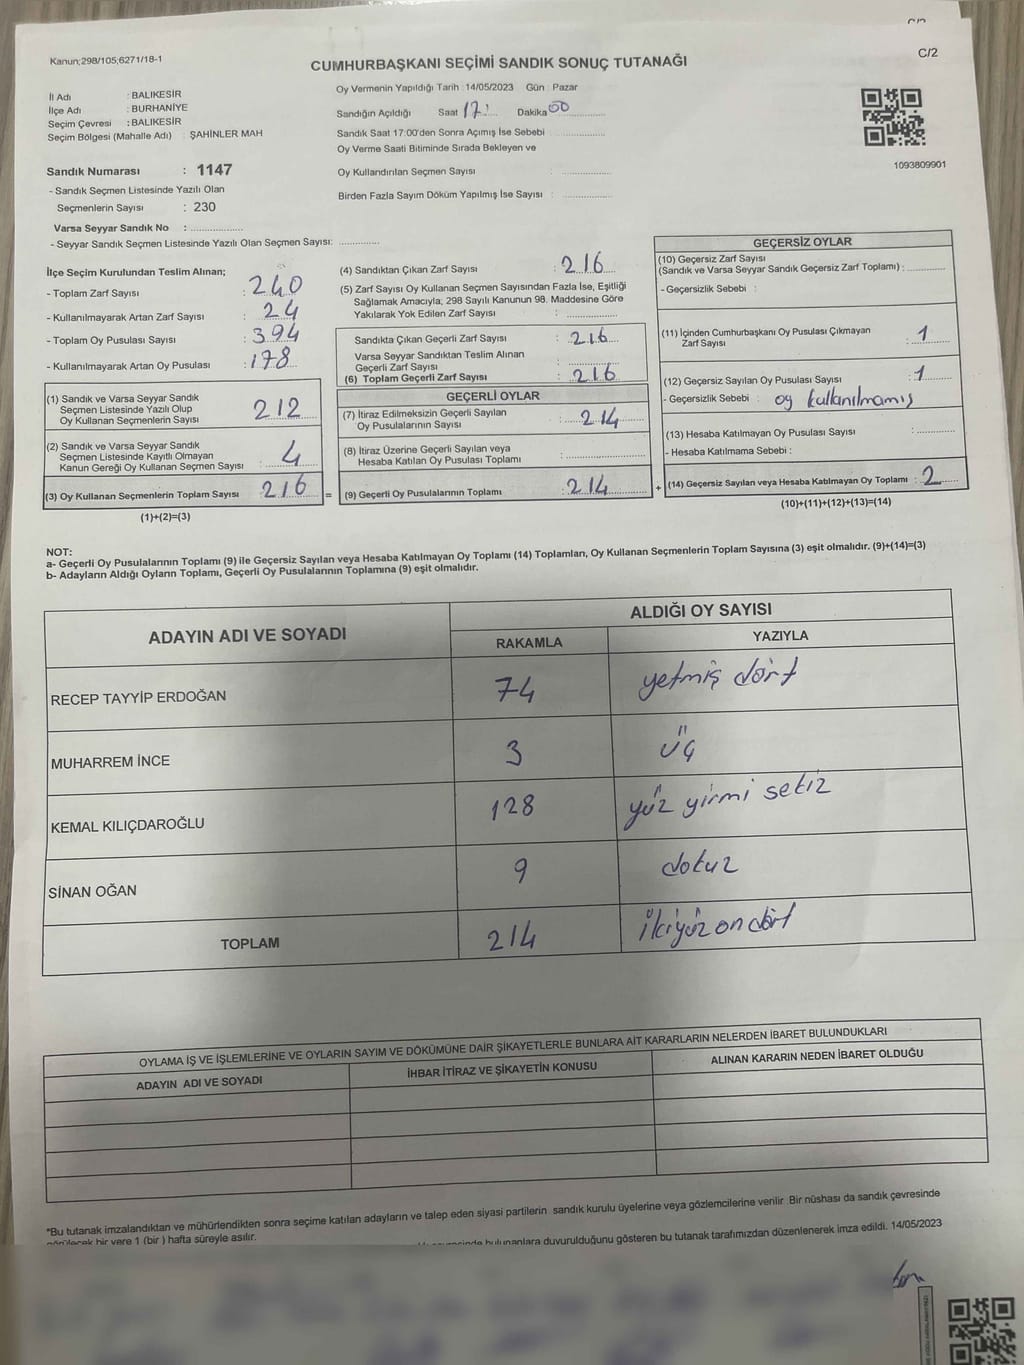 Kanun;298/105;6271/18-1
C/2
CUMHURBAŞKANI SEÇİMİ SANDIK SONUÇ TUTANAĞI
İl Adı : BALIKESİR
İlçe Adı : BURHANİYE
Seçim Çevresi : BALIKESİR
Seçim Bölgesi (Mahalle Adı) : ŞAHİNLER MAH
Oy Vermenin Yapıldığı Tarih : 14/05/2023 Gün : Pazar
Sandığın Açıldığı Saat 17: Dakika 00
Sandık Saat 17:00'den Sonra Açımış İse Sebebi
Oy Verme Saati Bitiminde Sırada Bekleyen ve
Oy Kullandırılan Seçmen Sayısı :
Birden Fazla Sayım Döküm Yapılmış İse Sayısı :
1093809901
Sandık Numarası : 1147
- Sandık Seçmen Listesinde Yazılı Olan
Seçmenlerin Sayısı : 230
Varsa Seyyar Sandık No :
- Seyyar Sandık Seçmen Listesinde Yazılı Olan Seçmen Sayısı:
İlçe Seçim Kurulundan Teslim Alınan;
- Toplam Zarf Sayısı : 240
- Kullanılmayarak Artan Zarf Sayısı : 24
- Toplam Oy Pusulası Sayısı : 394
- Kullanılmayarak Artan Oy Pusulası : 178
(1) Sandık ve Varsa Seyyar Sandık
Seçmen Listesinde Yazılı Olup
Oy Kullanan Seçmenlerin Sayısı 212
(2) Sandık ve Varsa Seyyar Sandık
Seçmen Listesinde Kayıtlı Olmayan
Kanun Gereği Oy Kullanan Seçmen Sayısı : 4
(3) Oy Kullanan Seçmenlerin Toplam Sayısı 216 =
(1)+(2)=(3)
(4) Sandıktan Çıkan Zarf Sayısı : 216
(5) Zarf Sayısı Oy Kullanan Seçmen Sayısından Fazla İse, Eşitliği
Sağlamak Amacıyla; 298 Sayılı Kanunun 98. Maddesine Göre
Yakılarak Yok Edilen Zarf Sayısı :
Sandıkta Çıkan Geçerli Zarf Sayısı : 216
Varsa Seyyar Sandıktan Teslim Alınan
Geçerli Zarf Sayısı :
(6) Toplam Geçerli Zarf Sayısı : 216
GEÇERLİ OYLAR
(7) İtiraz Edilmeksizin Geçerli Sayılan
Oy Pusulalarının Sayısı : 214
(8) İtiraz Üzerine Geçerli Sayılan veya
Hesaba Katılan Oy Pusulası Toplamı :
(9) Geçerli Oy Pusulalarının Toplamı : 214 +
GEÇERSİZ OYLAR
(10) Geçersiz Zarf Sayısı
(Sandık ve Varsa Seyyar Sandık Geçersiz Zarf Toplamı) :
- Geçersizlik Sebebi :
(11) İçinden Cumhurbaşkanı Oy Pusulası Çıkmayan
Zarf Sayısı : 1
(12) Geçersiz Sayılan Oy Pusulası Sayısı : 1
- Geçersizlik Sebebi : oy kullanılmamış
(13) Hesaba Katılmayan Oy Pusulası Sayısı :
- Hesaba Katılmama Sebebi :
(14) Geçersiz Sayılan veya Hesaba Katılmayan Oy Toplamı : 2
(10)+(11)+(12)+(13)=(14)
NOT:
a- Geçerli Oy Pusulalarının Toplamı (9) ile Geçersiz Sayılan veya Hesaba Katılmayan Oy Toplamı (14) Toplamları, Oy Kullanan Seçmenlerin Toplam Sayısına (3) eşit olmalıdır. (9)+(14)=(3)
b- Adayların Aldığı Oyların Toplamı, Geçerli Oy Pusulalarının Toplamına (9) eşit olmalıdır.
ADAYIN ADI VE SOYADI
ALDIĞI OY SAYISI
RAKAMLA YAZIYLA
RECEP TAYYİP ERDOĞAN 74 yetmiş dört
MUHARREM İNCE 3 üç
KEMAL KILIÇDAROĞLU 128 yüz yirmi sekiz
SİNAN OĞAN 9 dokuz
TOPLAM 214 ikiyüz on dört
OYLAMA İŞ VE İŞLEMLERİNE VE OYLARIN SAYIM VE DÖKÜMÜNE DAİR ŞİKAYETLERLE BUNLARA AİT KARARLARIN NELERDEN İBARET BULUNDUKLARI
ADAYIN ADI VE SOYADI İHBAR İTİRAZ VE ŞİKAYETİN KONUSU ALINAN KARARIN NEDEN İBARET OLDUĞU
*Bu tutanak imzalandıktan ve mühürlendikten sonra seçime katılan adayların ve talep eden siyasi partilerin sandık kurulu üyelerine veya gözlemcilerine verilir. Bir nüshası da sandık çevresinde
görülecek bir yere 1 (bir) hafta süreyle asılır.
bulunanlara duyurulduğunu gösteren bu tutanak tarafımızdan düzenlenerek imza edildi. 14/05/2023